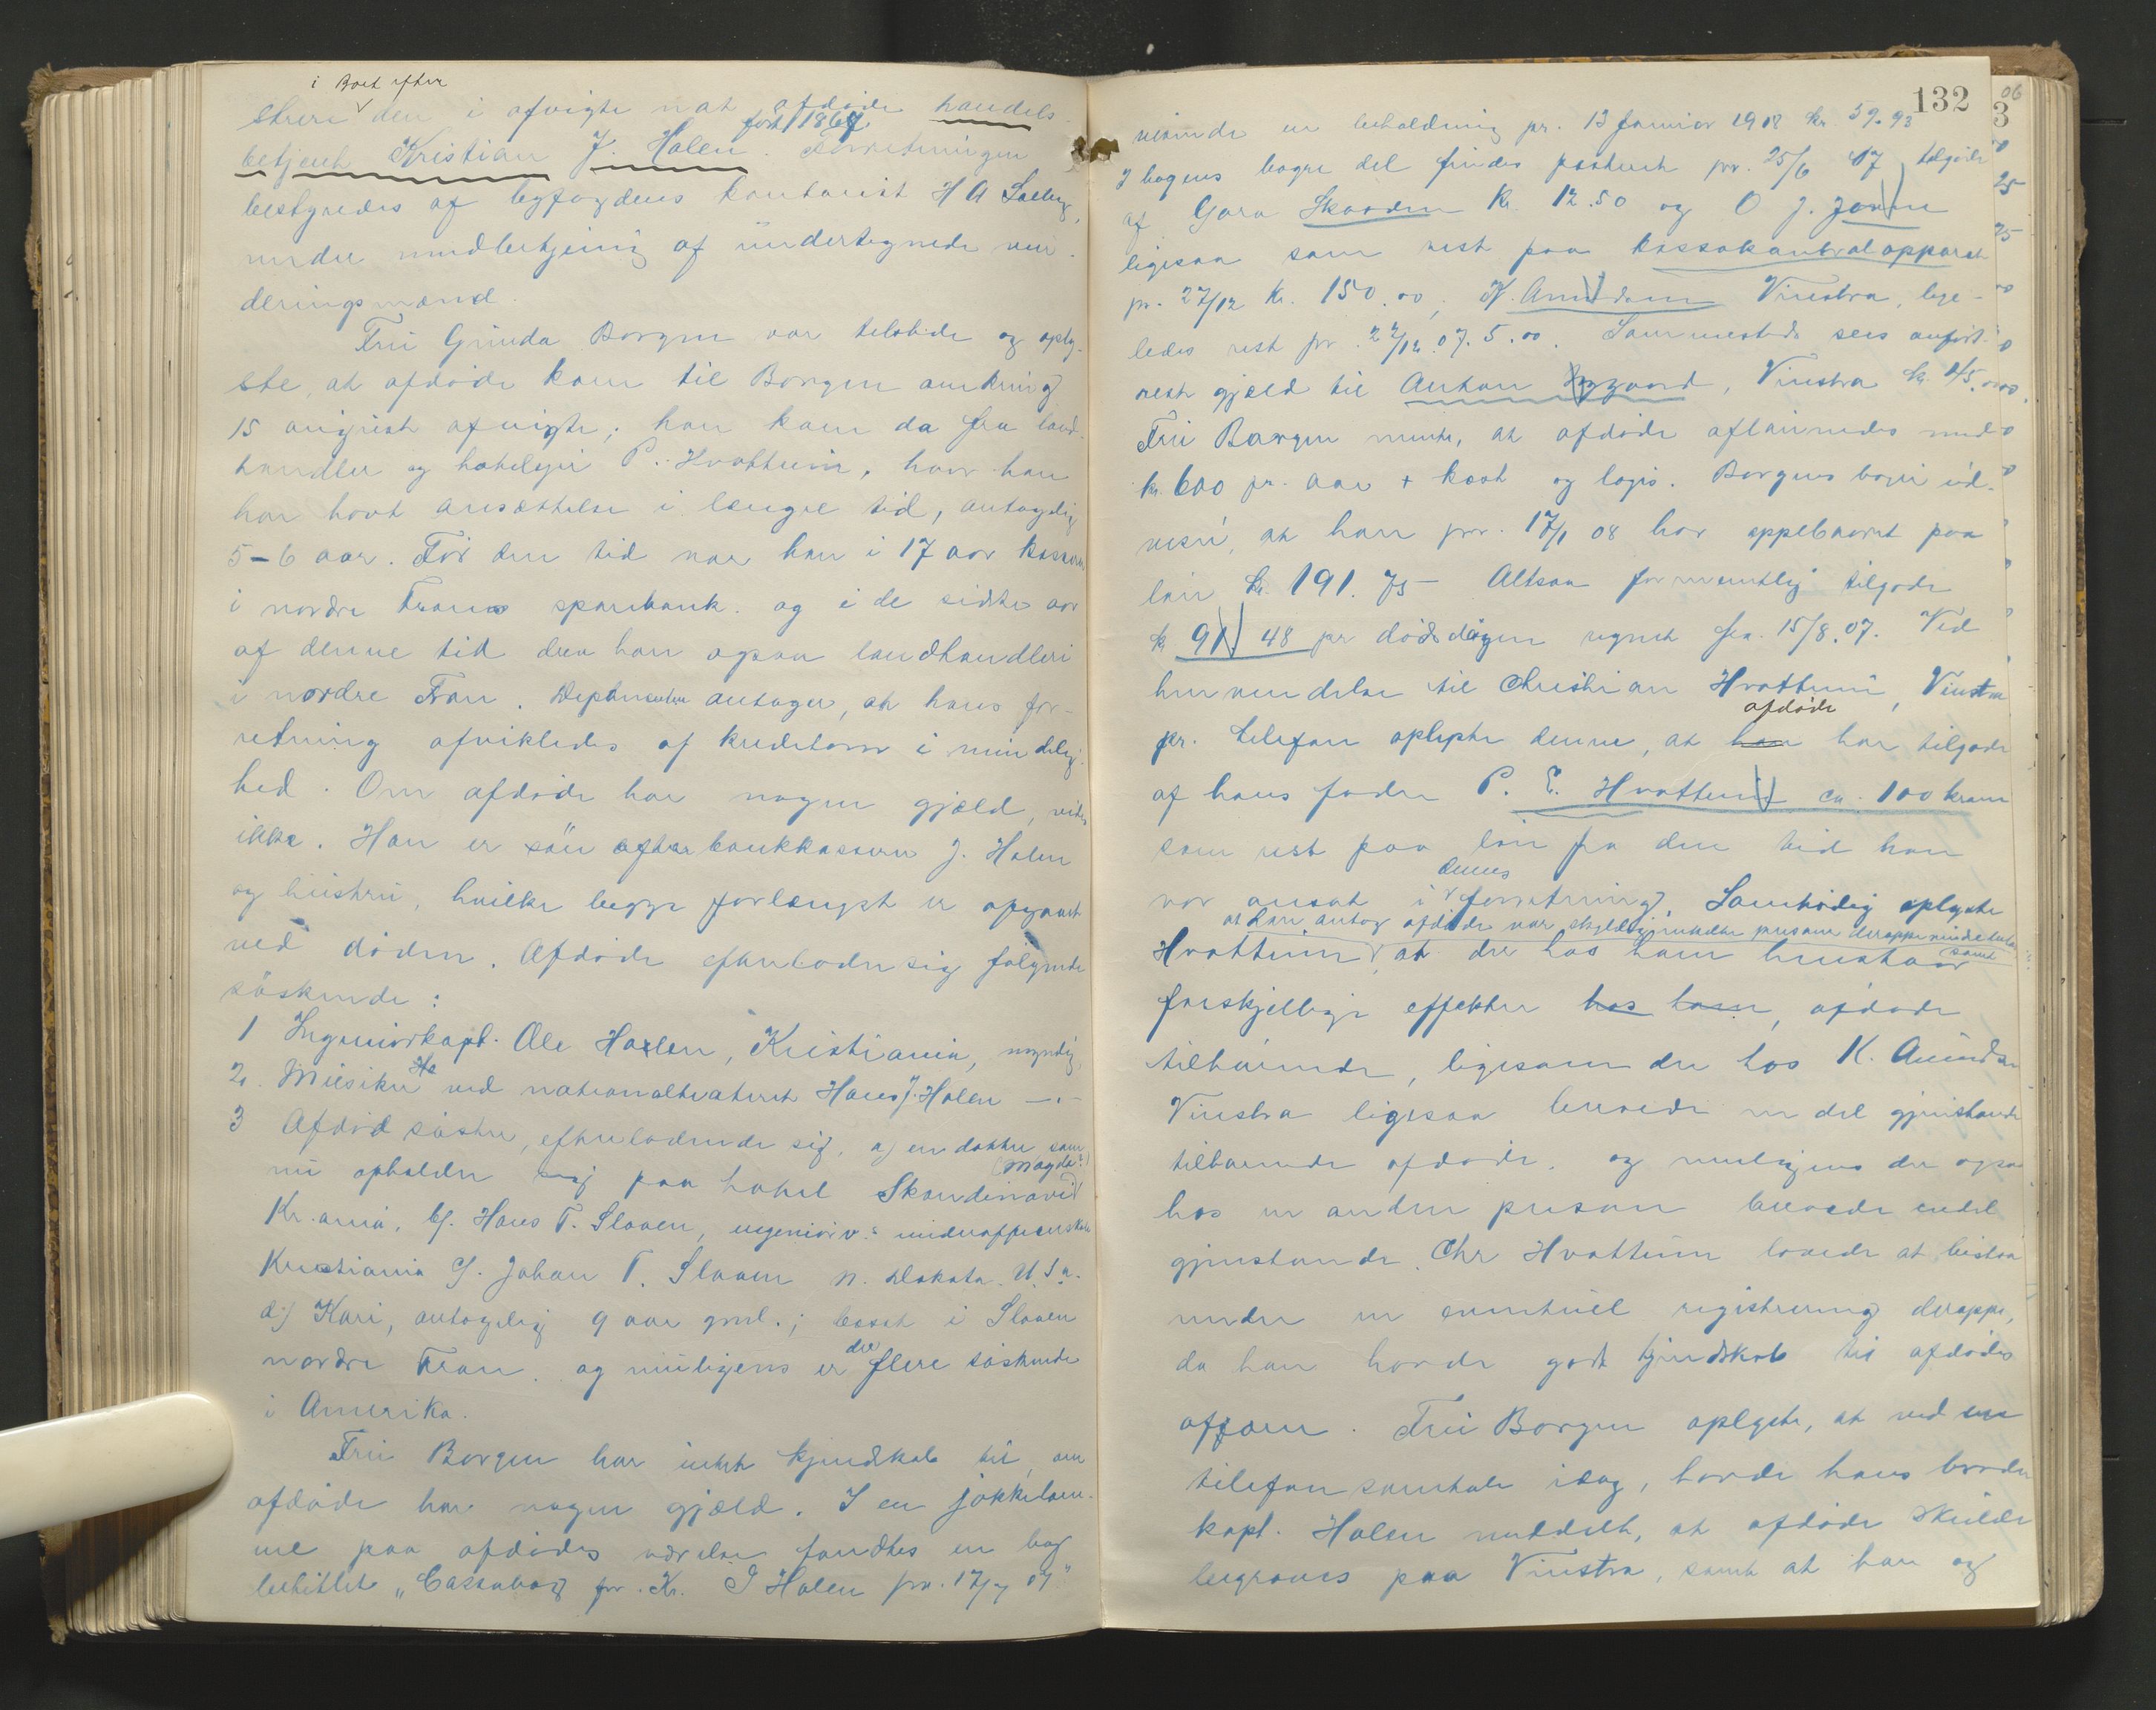 i Boet efter
strere den i afvigte nat afdøde handels-
født 1867
betjent Kristian J. Holen. Forretningen
bestyredes af byfogdens kontorist H A Solberg,
under medbetjening af undertegnede vur-
deringsmænd.
Fru Gunda Borgen var tilstede og oply-
ste, at afdøde kom til Borgen omkring
15 august afvigte; han kom da fra land-
handler og hoteleier P. Hvattum, hvor han
har havt ansættelse i længre tid, antagelig
5-6 aar. Før den tid var han i 17 aar kasserer
i nordre Frons sparebank og i de sidste aar
af denne tid drev han ogsaa landhandleri
i nordre Fron. Deponenten antager, at hans for-
retning afvikledes af kreditorer i mindelig-
hed. Om afdøde har nogen gjæld, vides
ikke. Han er søn efter bankkasserer J. Holen
og hustru, hvilke begge forlængst er afgaaet
ved døden. Afdøde efterlader sig følgende
søskende:
1 Ingeniørkapt. Ole Holen, Kristiania, myndig,
2. Musiker ved nationalteateret Hans J. Holen -"-
3 Afdød søster, efterladende sig, a) en datter som
(Magda?)
nu opholder sig paa hotel Skandinavia
Kr.ania, b). Hans T. Slaaen, ingeniør v. underofficerskolen
Kristiania c). Johan T. Slaaen N. Dakota U.S.A.
d) Kari, antagelig 9 aar gml.; bosat i Slaaen
nordre Fron. og muligens er der flere søskende
i Amerika.
Fru Borgen har intet kjendskab til, om
afdøde har nogen gjæld. I en jakkelom-
me paa afdødes værelse fandtes en bog
betitlet "Cassabog for Kr. J Holen fra 17/7 07"
132
visende en beholdning pr. 13 januar 1908 kr. 59.93
I bogens bagre del findes posteret pr. 25/6 07 tilgode
af Gara Skaaden kr. 12.50 og O J.
ligesaa som rest paa kassakontrolapparat
pr. 27/12 kr. 150.00, K. Amundsen Vinstra, lige-
ledes rest pr. 22/12.07. 5.00. Sammesteds sees anført
rest gjæld til Anton, Vinstra kr. 45.00
Fru Borgen mente, at afdøde aflønnedes med
kr. 600 pr. aar + kost og logis. Borgens bøger ud-
viser, at han pr. 17/1 08 har oppebaaret paa
løn kr. 191.75 - Altsaa formentlig tilgode
kr 91 48 pr dødsdagen regnet fra 15/8.07. Ved
henvendelse til Christian Hvattum, Vinstra
afdøde
pr. telefon oplyste denne, at han har tilgode
af hans fader P. E. Hvattum ca. 100 kroner
som rest paa løn fra den tid han
dennes
var ansat i forretning. Samtidig oplyste
at han antog afdøde var skyldig enkelte personer deroppe mindre beløb
samt
Hvattum, at der hos ham henstaar
forskjellige effekter hos ham, afdøde
tilhørende, ligesom der hos K. Amundsen
Vinstra ligesaa beroede en del gjenstande
tilhørende afdøde. og muligens der ogsaa
hos en anden person beroede endel
gjenstande. Chr Hvattum lovede at bistaa
under en eventuel registrering deroppe,
da han havde godt kjendskab til afdødes
affærer. Fru Borgen oplyste, at ved en
telefonsamtale idag, havde hans broder
kapt. Holen meddelt, at afdøde skulde
begraves paa Vinstra, samt at han og
06
3
25
25